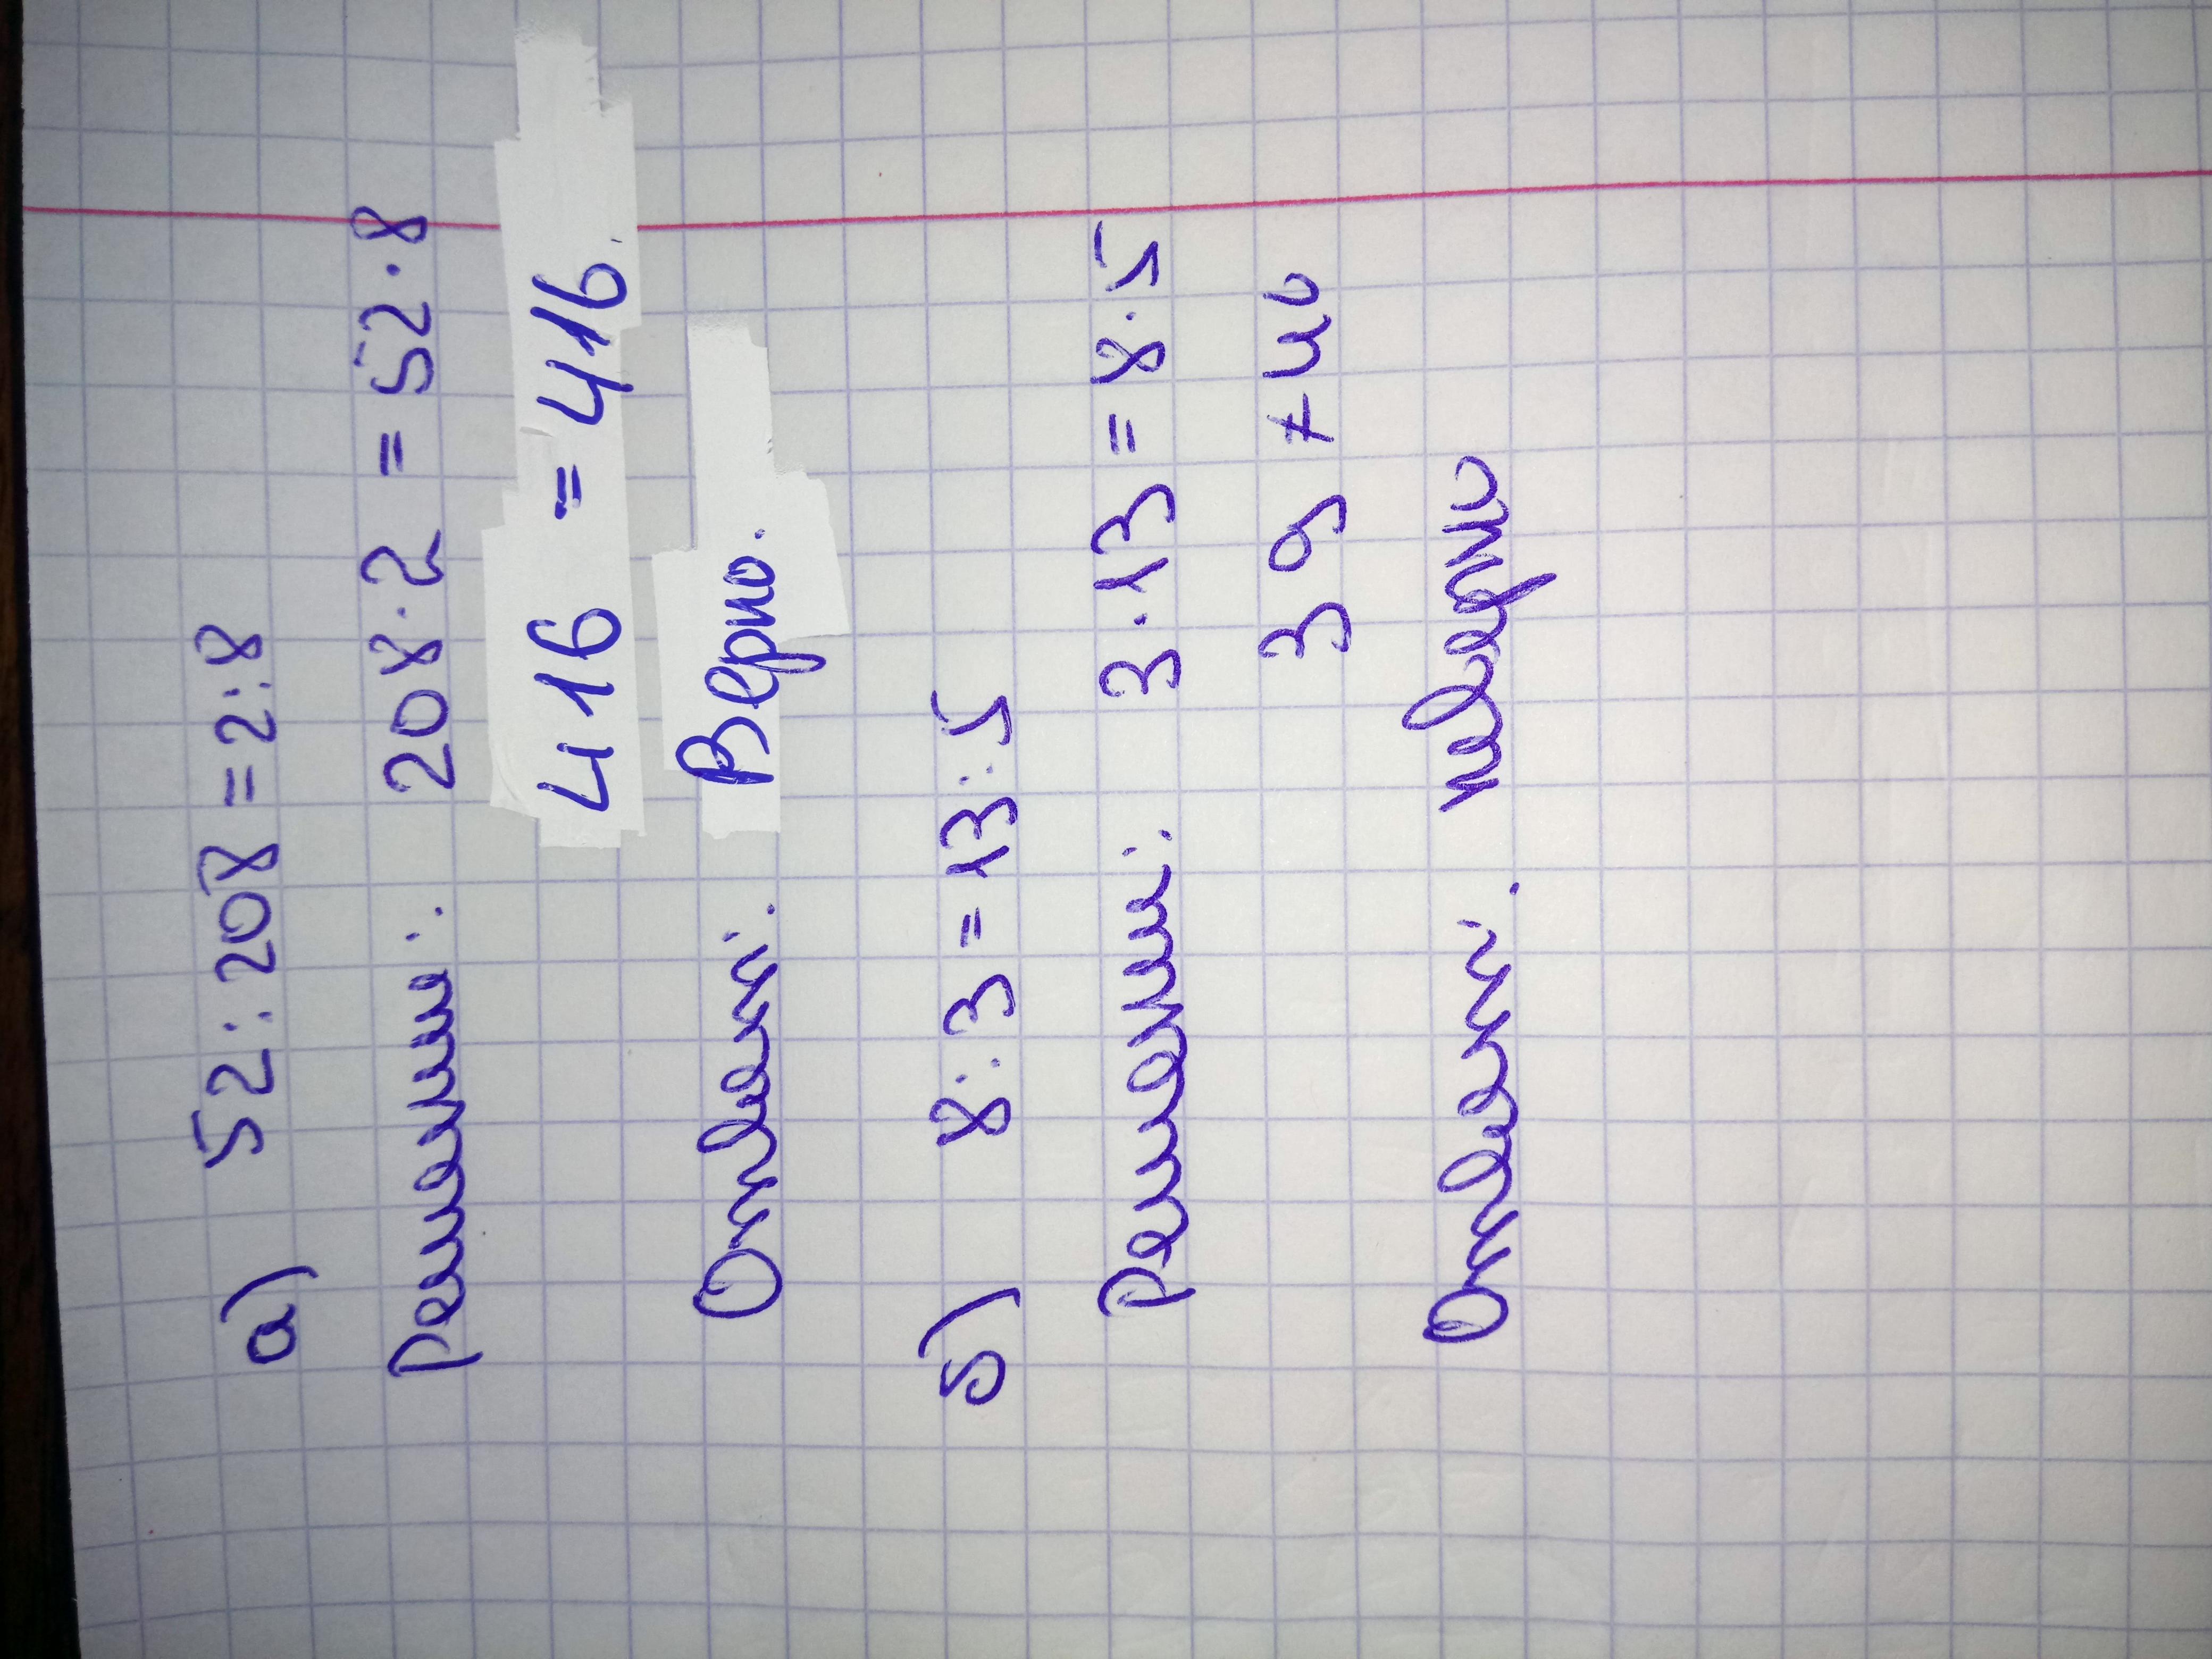 а) 52 : 208 = 2 : 8
Решение: 208 · 2 = 52 · 8
416 = 416.
Ответ: Верно.
б) 8 : 3 = 13 : 5
Решение: 3 · 13 = 8 · 5
39 ≠ 40
Ответ: неверно